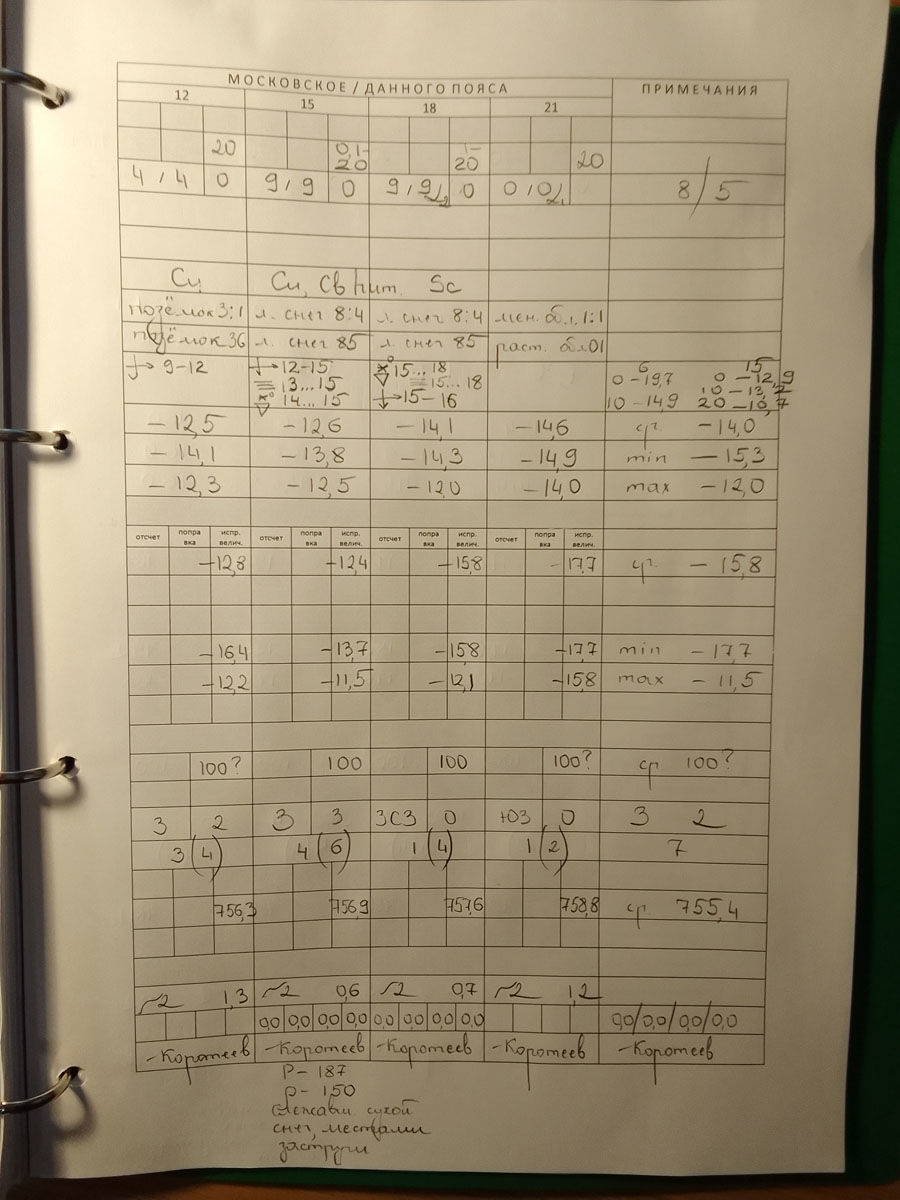 МОСКОВСКОЕ / ДАННОГО ПОЯСА ПРИМЕЧАНИЯ
12 15 18 21
0,1- 1-
20 20 20 20
4 / 4 0 9 / 9 0 9 / 9/2 0 0 / 0/1 8/5
Cu Cu, Cb hum. Sc
позёмок 3:1 л. снег 8:4 л. снег 8:4 мен. обл. 1:1
позёмок 36 л. снег 85 л. снег 85 раст. обл 01
9-12 12-15 15...18 6 15
13...15 15...18 0 -19,7 0 -12,9
14...15 15-16 10 -13,2
10 -14,9 20 -10,7
-12,5 -12,6 -14,1 -14,6 ср. -14,0
-14,1 -13,8 -14,3 -14,9 min -15,3
-12,3 -12,5 -12,0 -14,0 max -12,0
отсчет попра вка испр. велич. отсчет попра вка испр. велич. отсчет попра вка испр. велич. отсчет попра вка испр. велич.
-12,8 -12,4 -15,8 -17,7 ср. -15,8
-16,4 -13,7 -15,8 -17,7 min -17,7
-12,2 -11,5 -12,1 -15,8 max -11,5
100? 100 100 100? ср 100?
З 2 З 3 ЗСЗ 0 ЮЗ 0 З 2
3 (4) 4 (6) 1 (4) 1 (2) 7
756,3 756,9 757,6 758,8 ср. 755,4
2 1,3 2 0,6 2 0,7 2 1,2
0,0 0,0 0,0 0,0 0,0 0,0 0,0 0,0 0,0/0,0/0,0/0,0
-Коротеев -Коротеев -Коротеев -Коротеев -Коротеев
P- 187
p- 150
слежавш сухой
снег, местами
заструги